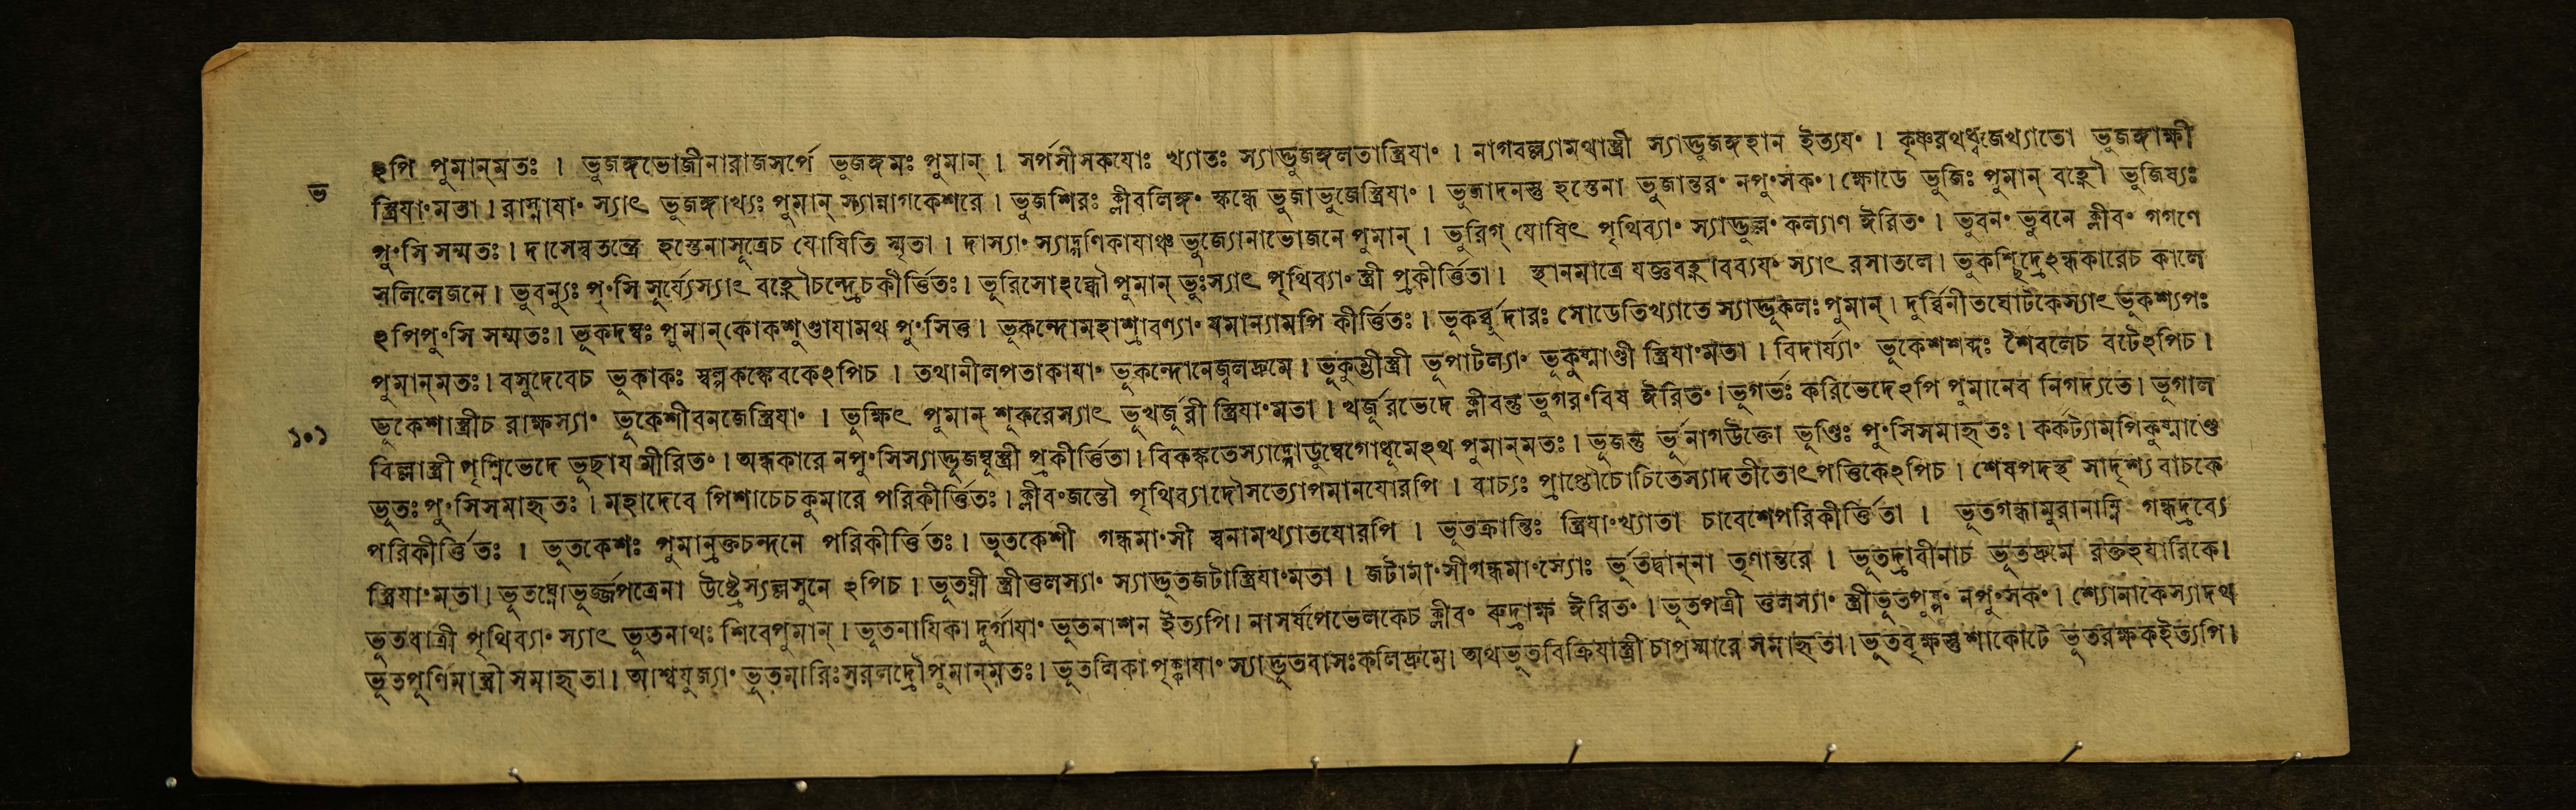 ঽপি পুমান্মতঃ । ভুজঙ্গভোজীনারাজসর্পে ভুজঙ্গমঃ পুমান্ । সর্পসীসকযোঃ খ্যাতঃ স্যাদ্ভুজঙ্গলতাস্ত্রিযা॰ । নাগবল্ল্যামথাস্ত্রী স্যাদ্ভুজঙ্গহান ইত্যয॰ । কৃষ্ণরথধ্বজেখ্যাতো ভুজঙ্গাক্ষী
ভ
স্ত্রিযা॰মতা । রাস্নাযা॰ স্যাৎ ভুজঙ্গাখ্যঃ পুমান্ স্যান্নাগকেশরে । ভুজশিরঃ ক্লীবলিঙ্গ॰ স্কন্ধে ভুজাভুজেস্ত্রিযা॰ । ভুজাদনস্তু হস্তেনা ভুজান্তর॰ নপু॰সক॰ । ক্ষোডে ভুজিঃ পুমান্ বহ্নৌ ভুজিষ্যঃ
পু॰সি সম্মতঃ । দাসেস্বতন্ত্রে হস্তেনাসূত্রেচ যোষিতি স্মৃতা । দাস্যা॰ স্যাদ্গণিকাযাঞ্চ ভুজ্যোনাভোজনে পুমান্ । ভুরিগ্ যোষিৎ পৃথিব্যা॰ স্যাদ্ভুল্ল॰ কল্যাণ ঈরিত॰ । ভুবন॰ ভুবনে ক্লীব॰ গগণে
সলিলেজনে । ভুবন্যুঃ পু॰সি সূর্য্যেস্যাৎ বহ্নৌচন্দ্রেচকীর্ত্তিতঃ । ভুরিসোঽব্ধৌ পুমান্ ভুঃস্যাৎ পৃথিব্যা॰ স্ত্রী প্রকীর্ত্তিতা । স্থানমাত্রে যজ্ঞবহ্নাবব্যয॰ স্যাৎ রসাতলে । ভুকশ্ছিদ্রেঽন্ধকারেচ কালে
ঽপিপু॰সি সম্মতঃ । ভূকদম্বঃ পুমান্ কোকশুণ্ডাযামথ পু॰সিত্ত । ভূকন্দোমহাশ্রাবণ্যা॰ যমান্যামপি কীর্ত্তিতঃ । ভূকর্ব্বুদারঃ সোডেতিখ্যাতে স্যাদ্ভূকলঃ পুমান্ । দুর্ব্বিনীতঘোটকেস্যাৎ ভূকশ্যপঃ
পুমান্মতঃ । বসুদেবেচ ভূকাকঃ স্বল্পকঙ্কেবকেঽপিচ । তথানীলপতাকাযা॰ ভূকন্দোনেজ্বলদ্রুমে । ভূকুম্ভীস্ত্রী ভূপাটল্যা॰ ভূকুষ্মাণ্ডী স্ত্রিযা॰মতা । বিদার্য্যা॰ ভূকেশশব্দঃ শৈবলেচ বটেঽপিচ ।
ভূকেশাস্ত্রীচ রাক্ষস্যা॰ ভূকেশীবনজেস্ত্রিযা॰ । ভূক্ষিৎ পুমান্ শূকরেস্যাৎ ভূখর্জুরী স্ত্রিযা॰মতা । খর্জুরভেদে ক্লীবন্তু ভুগর॰বিষ ঈরিত॰ । ভূগর্ভঃ করিভেদেঽপি পুমানেব নিগদ্যতে । ভূগাল
১০১
বিল্লাস্ত্রী পৃশ্নিভেদে ভূছাযমীরিত॰ । অন্ধকারে নপু॰সিস্যাদ্ভূজম্বুস্ত্রী প্রকীর্ত্তিতা । বিকঙ্কতেস্যাদ্গোডুম্বেগোধূমেঽথ পুমান্মতঃ । ভূজন্তু র্ভূনাগউক্তো ভূণ্ডিঃ পু॰সিসমাহৃতঃ । কর্কট্যামপিকুষ্মাণ্ডে
ভূতঃ পু॰সিসমাহৃতঃ । মহাদেবে পিশাচেচকুমারে পরিকীর্ত্তিতঃ । ক্লীব॰জন্তৌ পৃথিব্যাদৌসত্যোপমানযোরপি । বাচ্যঃ প্রাপ্তৌচোচিতেস্যাদতীতোৎপত্তিকেঽপিচ । শেষপদস্থ সাদৃশ্য বাচকে
পরিকীর্ত্তিতঃ । ভুতকেশঃ পুমান্রক্তচন্দনে পরিকীর্ত্তিতঃ । ভুতকেশী গন্ধমা॰সী স্বনামখ্যাতযোরপি । ভূতক্রান্তিঃ স্ত্রিযা॰খ্যাতা চাবেশেপরিকীর্ত্তিতা । ভূতগন্ধামুরানাম্নি গন্ধদ্রব্যে
স্ত্রিযা॰মতা । ভূতঘ্নোভূর্জ্জপত্রেনা উষ্ট্রেস্যল্লসুনে ঽপিচ । ভূতঘ্নী স্ত্রীত্তলস্যা॰ স্যাদ্ভূতজটাস্ত্রিযা॰মতা । জটামা॰সীগন্ধমা॰স্যোঃ র্ভুতদ্বান্না তৃণান্তরে । ভূতদ্রাবীনাচ ভূতদ্রুমে রক্তহযারিকে ।
ভূতধাত্রী পৃথিব্যা॰ স্যাৎ ভূতনাথঃ শিবেপুমান্ । ভূতনাযিকা দুর্গাযা॰ ভূতনাশন ইত্যপি । নাসর্ষপেভেলকেচ ক্লীব॰ রুদ্রাক্ষ ঈরিত॰ । ভূতপত্রী ত্তলস্যা॰ স্ত্রীভূতপুষ্প॰ নপু॰সক॰ । শ্যোনাকেস্যাদথ
ভূতপূর্ণিমাস্ত্রী সমাহৃতা । আশ্বযুজ্যা॰ ভূতমারিঃসরলদ্রৌপুমান্মতঃ । ভূতলিকা পৃক্কাযা॰ স্যাদ্ভূতবাসঃকলিদ্রুমে । অথভূতবিক্রিযাস্ত্রী চাপস্মারে সমাহৃতা । ভূতবৃক্ষস্তু শাকোটে ভূতরক্ষকইত্যপি ।